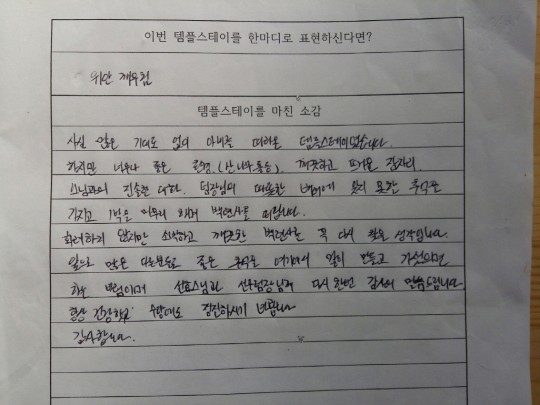 이번 템플스테이를 한마디로 표현하신다면?
위안 깨우침
템플스테이를 마친 소감
사실 많은 기대도 없이 아내를 따라온 템플스테이였습니다.
하지만 너무나 좋은 풍경, 깨끗하고 뜨거운 잠자리
스님과의 진솔한 대화. 팀장님의 따뜻한 배려에 잊지 못할 추억을
가지고 1박을 마무리 하며 백련사를 떠납니다.
화려하지 않지만 소박하고 깨끗한 백련사를 꼭 다시 찾을 생각입니다.
앞으로 많은 분들도 좋은 추억을 많이 만들고 가셨으면
하는 바램이며 스님과 팀장님께 다시 한번 감사의 말씀드립니다.
항상 건강하고 정진하시기 바랍니다
감사합니다.